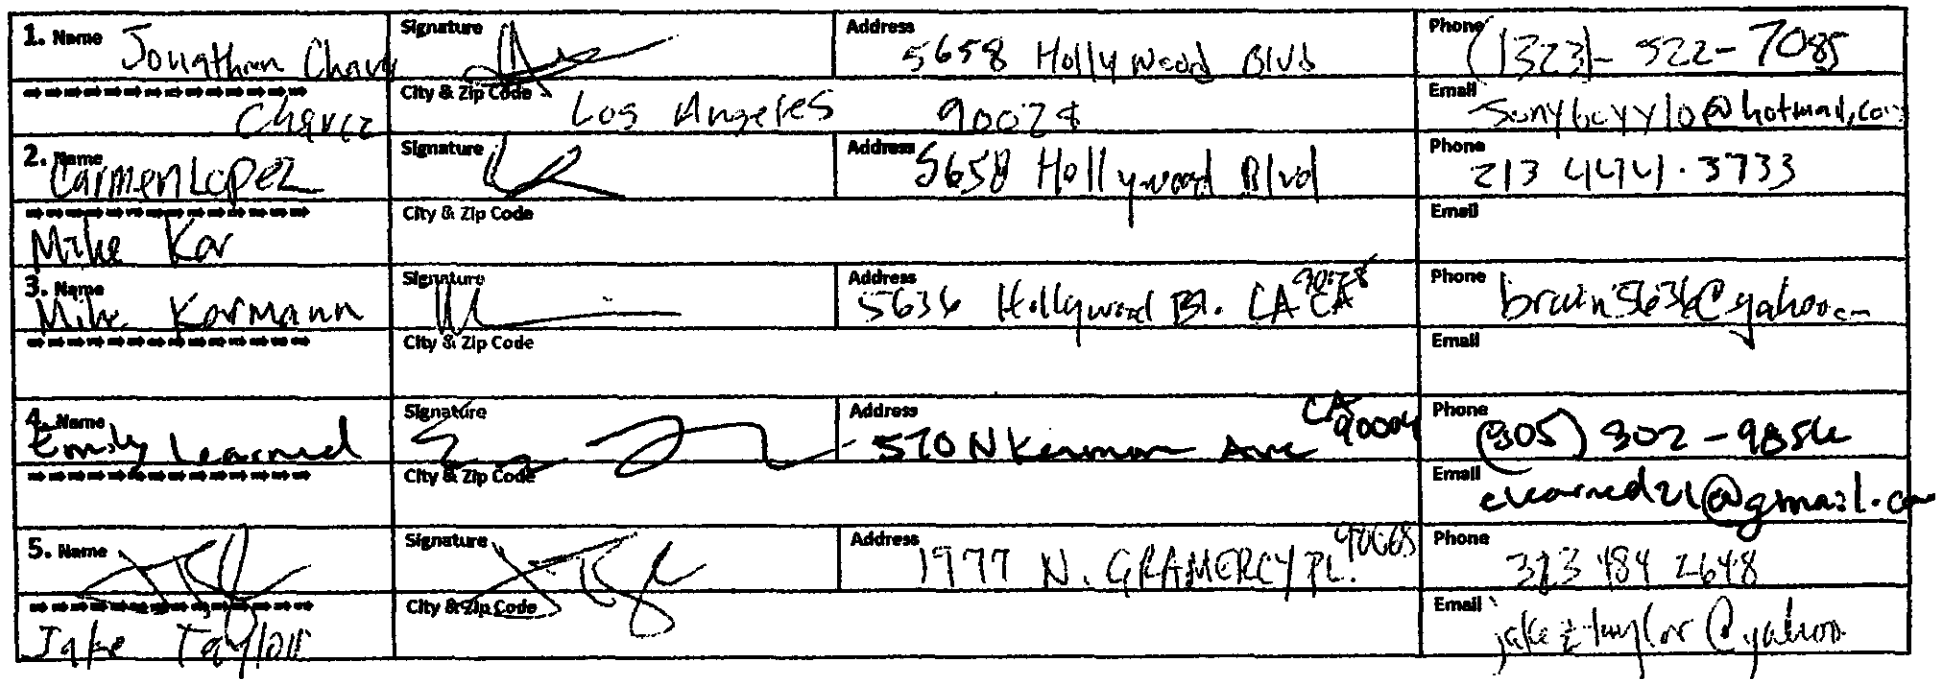 1. Name Jonathan Chavz Signature Address 5658 Hollywood Blvd Phone (1323)- 522-7085
Chavez City & Zip Code Los Angeles 90028 Email
2. Name Carmen Lopez Signature Address 5658 Hollywood Blvd Phone 213 444.3733
Mike Kor City & Zip Code Email
3. Name Mike Kormann Signature Address 5636 Hollywood Bl. LA CA 90028 Phone
City & Zip Code Email
4. Name Emily Learned Signature Address 570 N Kenmore Ave CA 90004 Phone (805)
City & Zip Code Email elearned21@gmail.com
5. Name Signature Address 1977 N. GRAMERCY PL. 90068 Phone 323 484 2648
Jake Taylor City & Zip Code Email